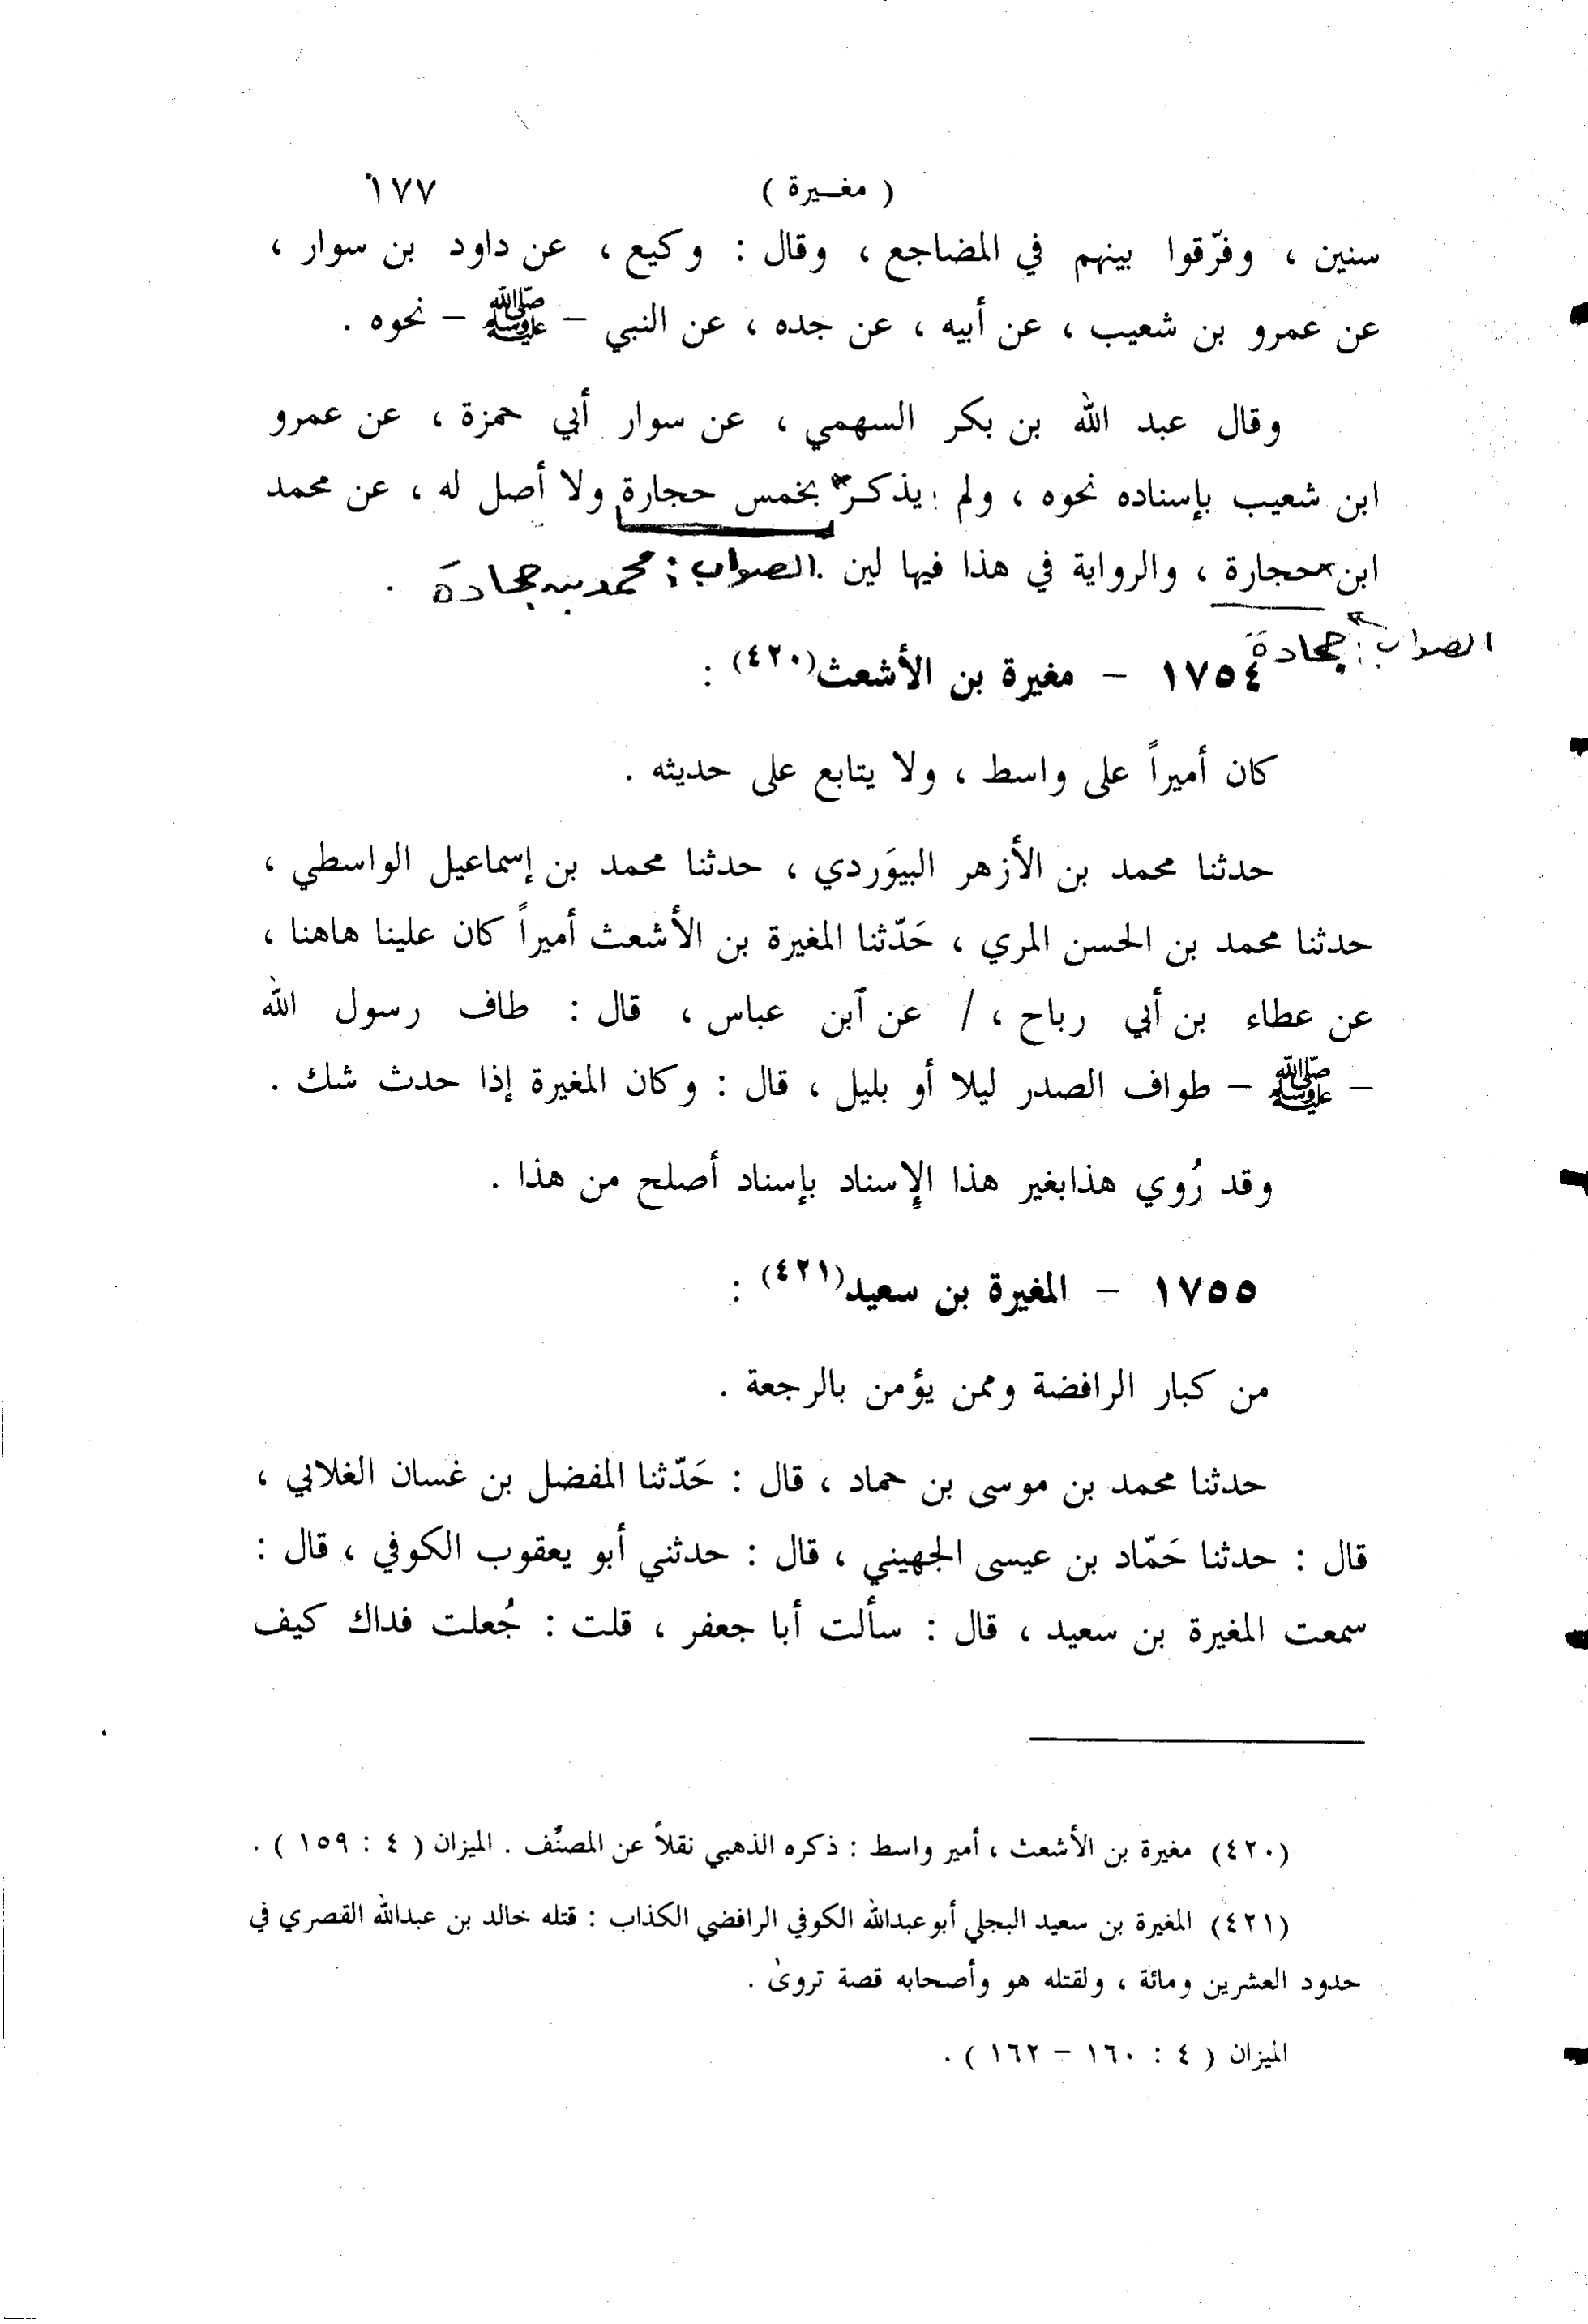 ( مغيرة ) ١٧٧
سنين ، وفرّقوا بينهم في المضاجع ، وقال : وكيع ، عن داود بن سوار ،
عن عمرو بن شعيب ، عن أبيه ، عن جده ، عن النبي – ﷺ – نحوه .
وقال عبد الله بن بكر السهمي ، عن سوار أبي حمزة ، عن عمرو
ابن شعيب بإسناده نحوه ، ولم يذكر بخمس حجارة ولا أصل له ، عن محمد
ابن حجارة ، والرواية في هذا فيها لين . الصواب : محمد بن جحادة .
الصواب : جحادة
١٧٥٤ – مغيرة بن الأشعث(٤٢٠) :
كان أميراً على واسط ، ولا يتابع على حديثه .
حدثنا محمد بن الأزهر البيوَردي ، حدثنا محمد بن إسماعيل الواسطي ،
حدثنا محمد بن الحسن المري ، حَدّثنا المغيرة بن الأشعث أميراً كان علينا هاهنا ،
عن عطاء بن أبي رباح ، / عن آبن عباس ، قال : طاف رسول الله
– ﷺ – طواف الصدر ليلا أو بليل ، قال : وكان المغيرة إذا حدث شك .
وقد رُوي هذابغير هذا الإسناد بإسناد أصلح من هذا .
١٧٥٥ – المغيرة بن سعيد(٤٢١) :
من كبار الرافضة وممن يؤمن بالرجعة .
حدثنا محمد بن موسى بن حماد ، قال : حَدّثنا المفضل بن غسان الغلابي ،
قال : حدثنا حَمّاد بن عيسى الجهيني ، قال : حدثني أبو يعقوب الكوفي ، قال :
سمعت المغيرة بن سعيد ، قال : سألت أبا جعفر ، قلت : جُعلت فداك كيف
(٤٢٠) مغيرة بن الأشعث ، أمير واسط : ذكره الذهبي نقلاً عن المصنِّف . الميزان ( ٤ : ١٥٩ ) .
(٤٢١) المغيرة بن سعيد البجلي أبوعبدالله الكوفي الرافضي الكذاب : قتله خالد بن عبدالله القصري في
حدود العشرين ومائة ، ولقتله هو وأصحابه قصة تروى .
الميزان ( ٤ : ١٦٠ – ١٦٢ ) .